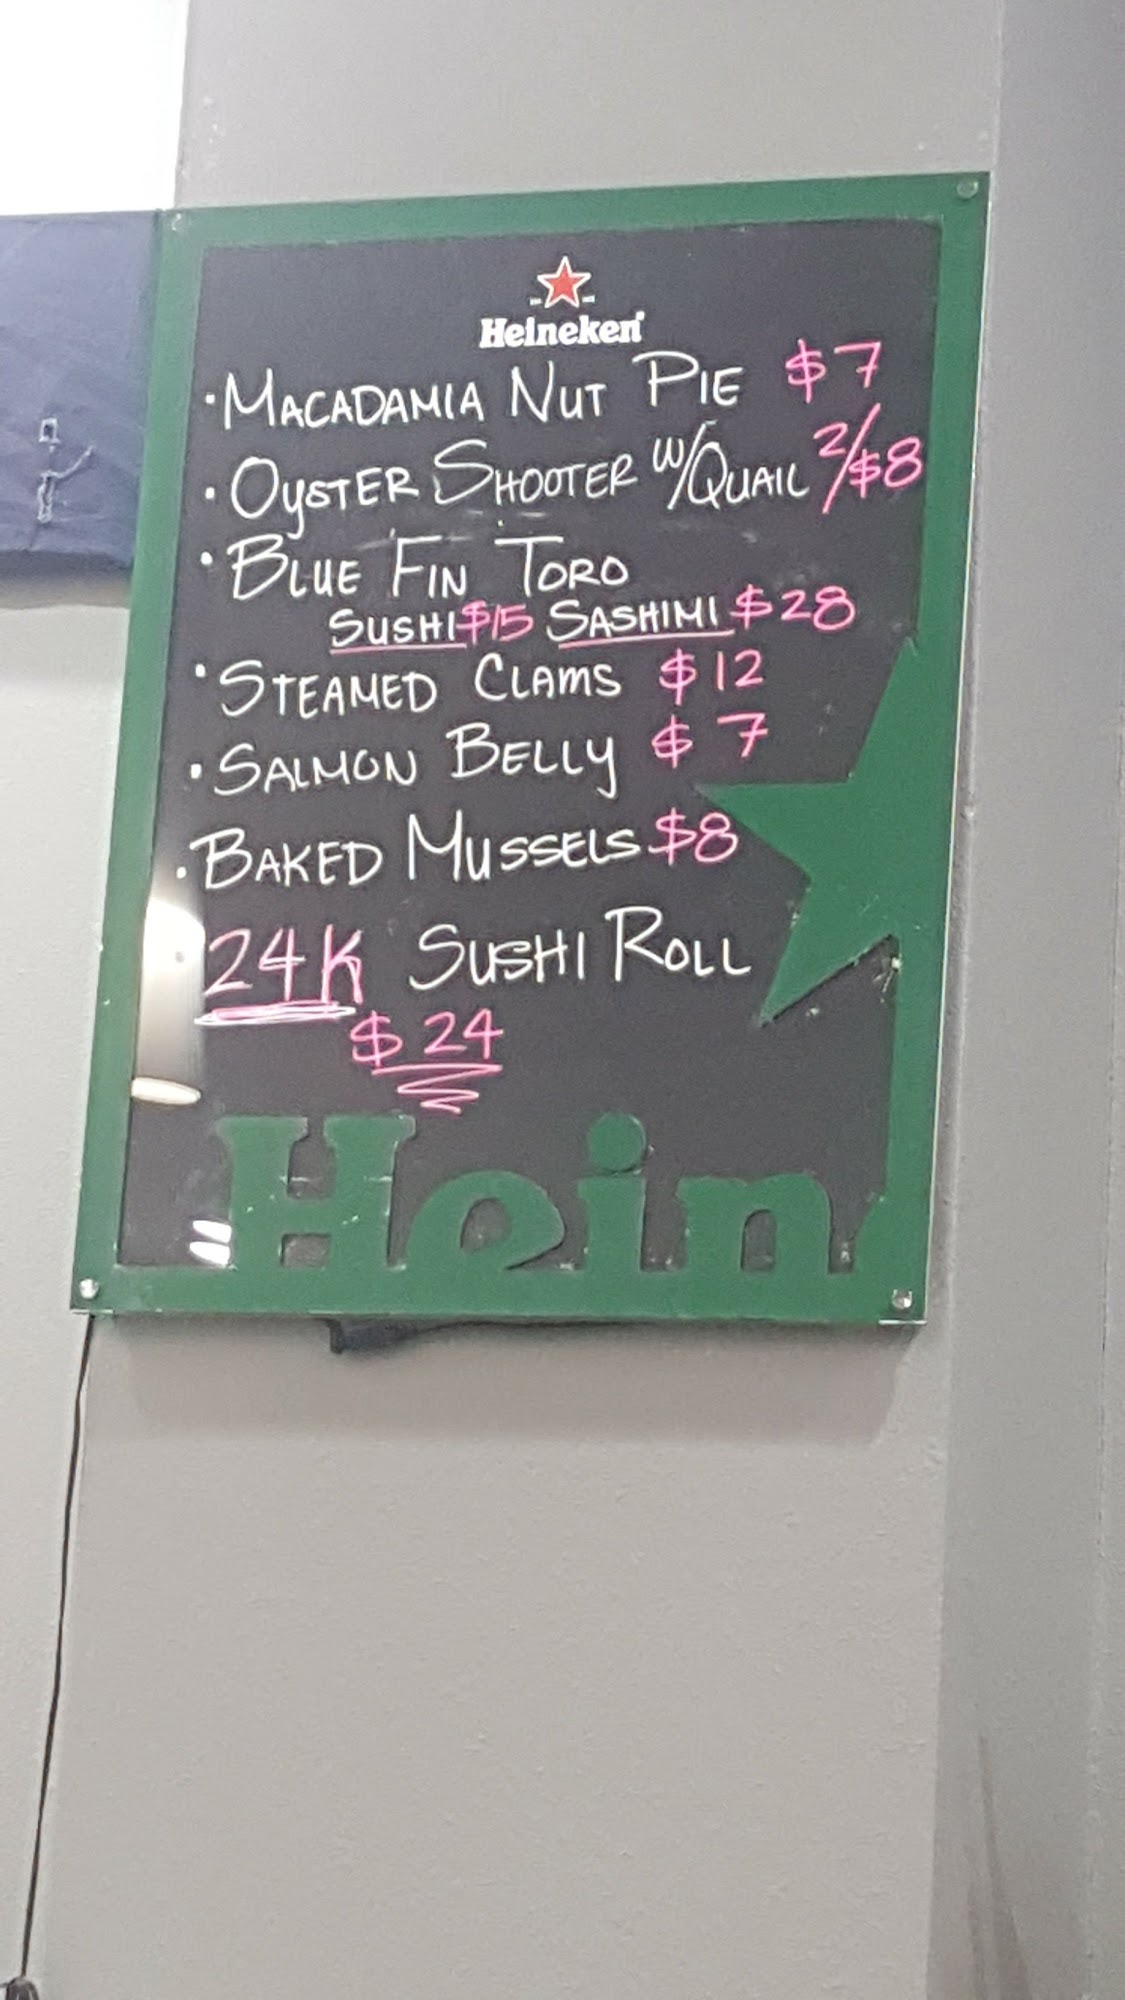 Heineken
• MACADAMIA NUT PIE $7
• OYSTER SHOOTER W/QUAIL 2/$8
• BLUE FIN TORO
SUSHI $15 SASHIMI $28
• STEAMED CLAMS $12
• SALMON BELLY $7
• BAKED MUSSELS $8
24K SUSHI ROLL
$24
Hein